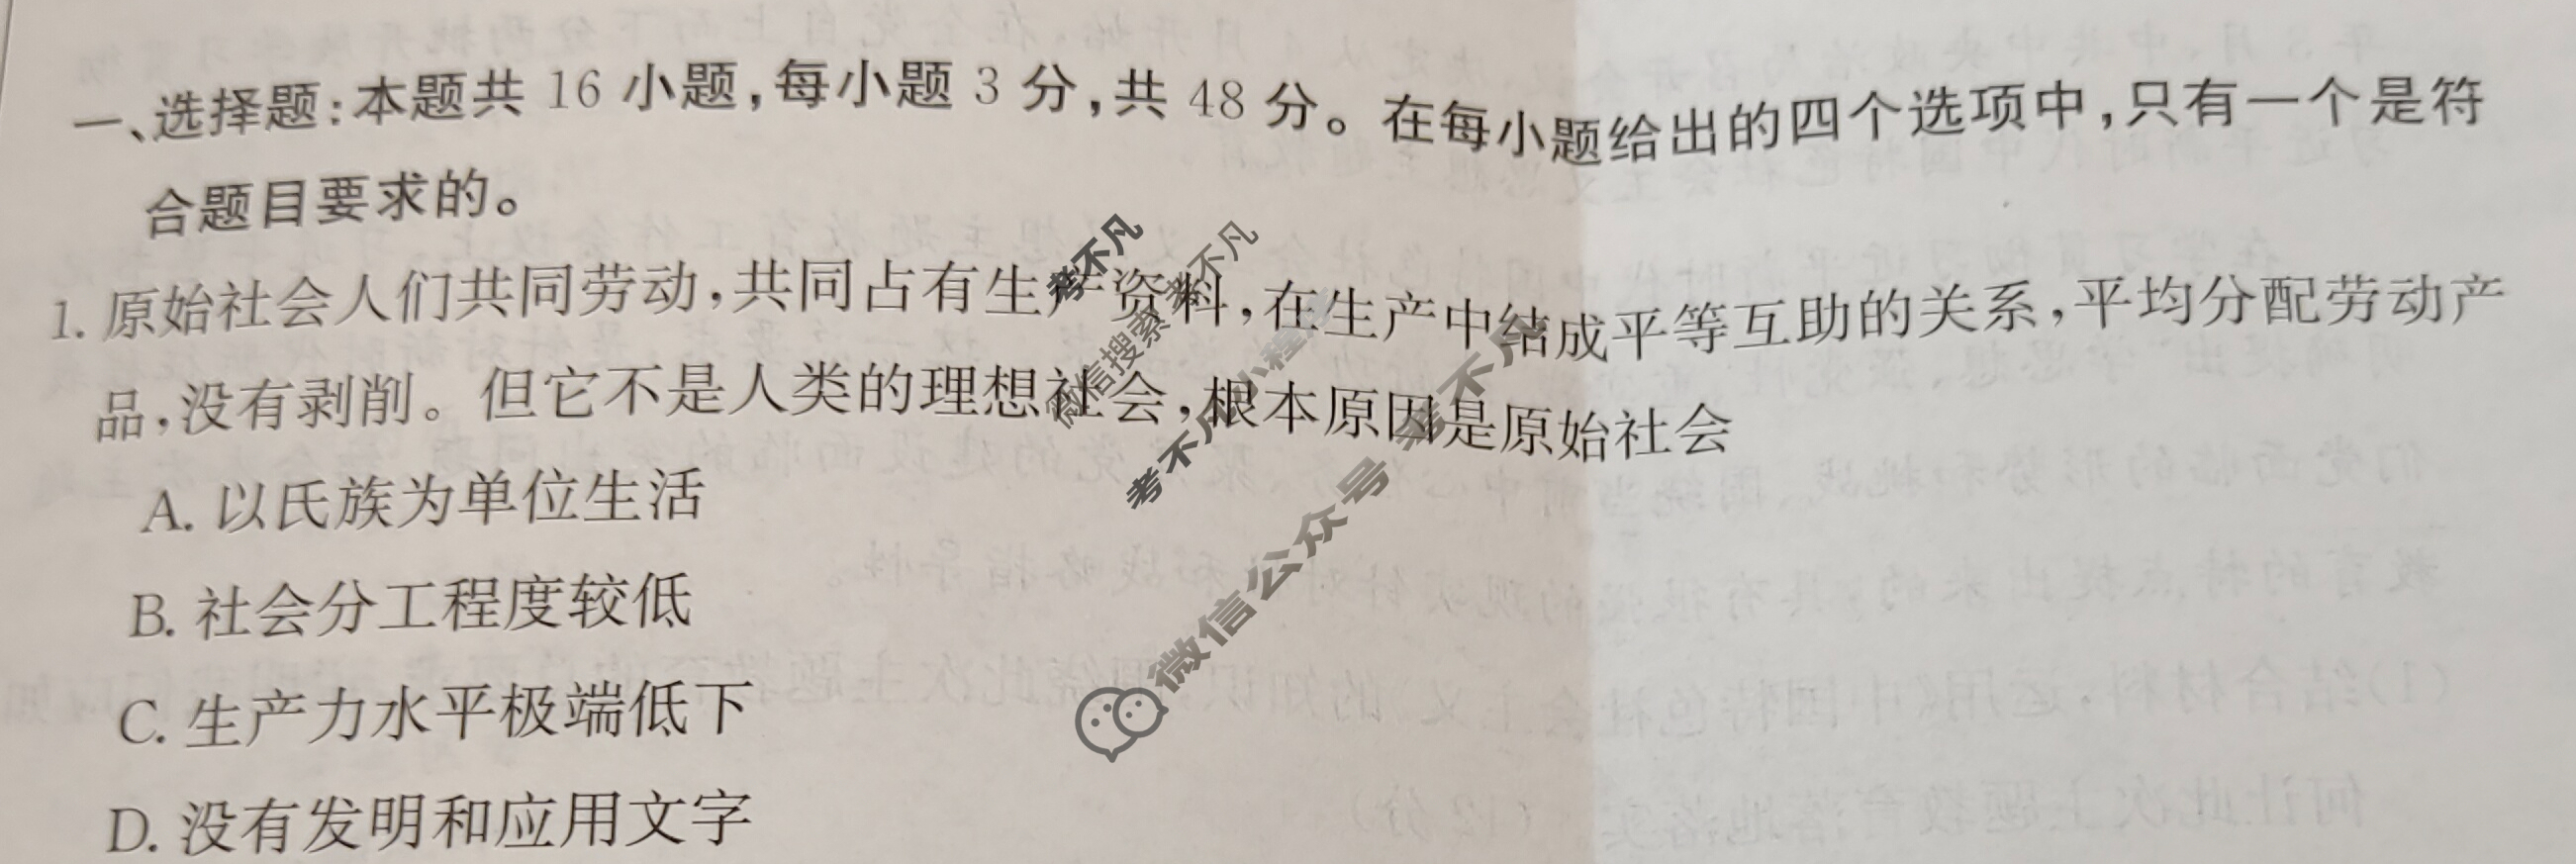 一、选择题:本题共 16 小题,每小题 3 分,共 48 分。在每小题给出的四个选项中,只有一个是符
合题目要求的。
1. 原始社会人们共同劳动,共同占有生产资料,在生产中结成平等互助的关系,平均分配劳动产
品,没有剥削。但它不是人类的理想社会,根本原因是原始社会
A. 以氏族为单位生活
B. 社会分工程度较低
C. 生产力水平极端低下
D. 没有发明和应用文字
考不凡
微信搜索 考不凡
考不凡小程序
微信公众号 考不凡